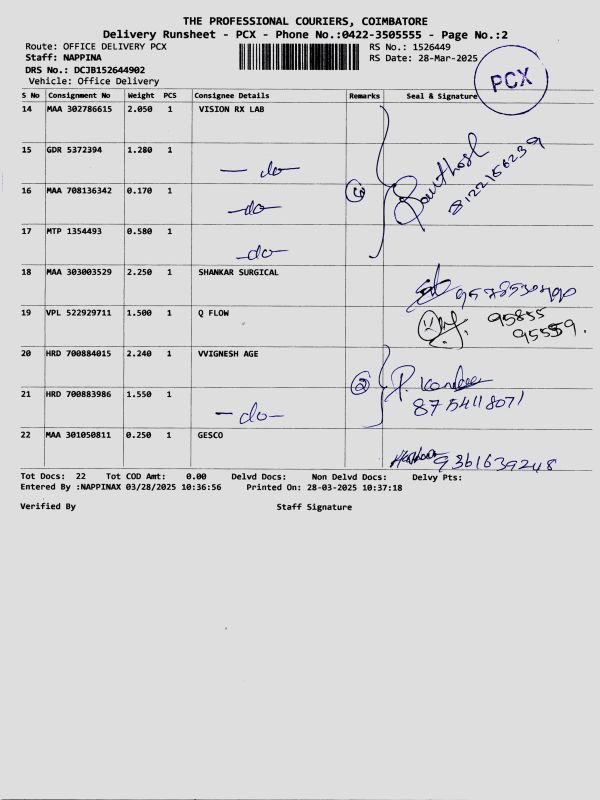 THE PROFESSIONAL COURIERS, COIMBATORE
Delivery Runsheet - PCX - Phone No.:0422-3505555 - Page No.:2
Route: OFFICE DELIVERY PCX RS No.: 1526449
Staff: NAPPINA RS Date: 28-Mar-2025
DRS No.: DCJB152644902
Vehicle: Office Delivery
PCX
S No Consignment No Weight PCS Consignee Details Remarks Seal & Signature
14 MAA 302786615 2.050 1 VISION RX LAB
15 GDR 5372394 1.280 1 - do -
16 MAA 708136342 0.170 1 - do -
17 MTP 1354493 0.580 1 - do -
Santhosh
8122156239
18 MAA 303003529 2.250 1 SHANKAR SURGICAL
19 VPL 522929711 1.500 1 Q FLOW
95855
95559.
20 HRD 700884015 2.240 1 VVIGNESH AGE
21 HRD 700883986 1.550 1 - do - 2
8754118071
22 MAA 301050811 0.250 1 GESCO
9361639248
Tot Docs: 22 Tot COD Amt: 0.00 Delvd Docs: Non Delvd Docs: Delvy Pts:
Entered By :NAPPINAX 03/28/2025 10:36:56 Printed On: 28-03-2025 10:37:18
Verified By Staff Signature